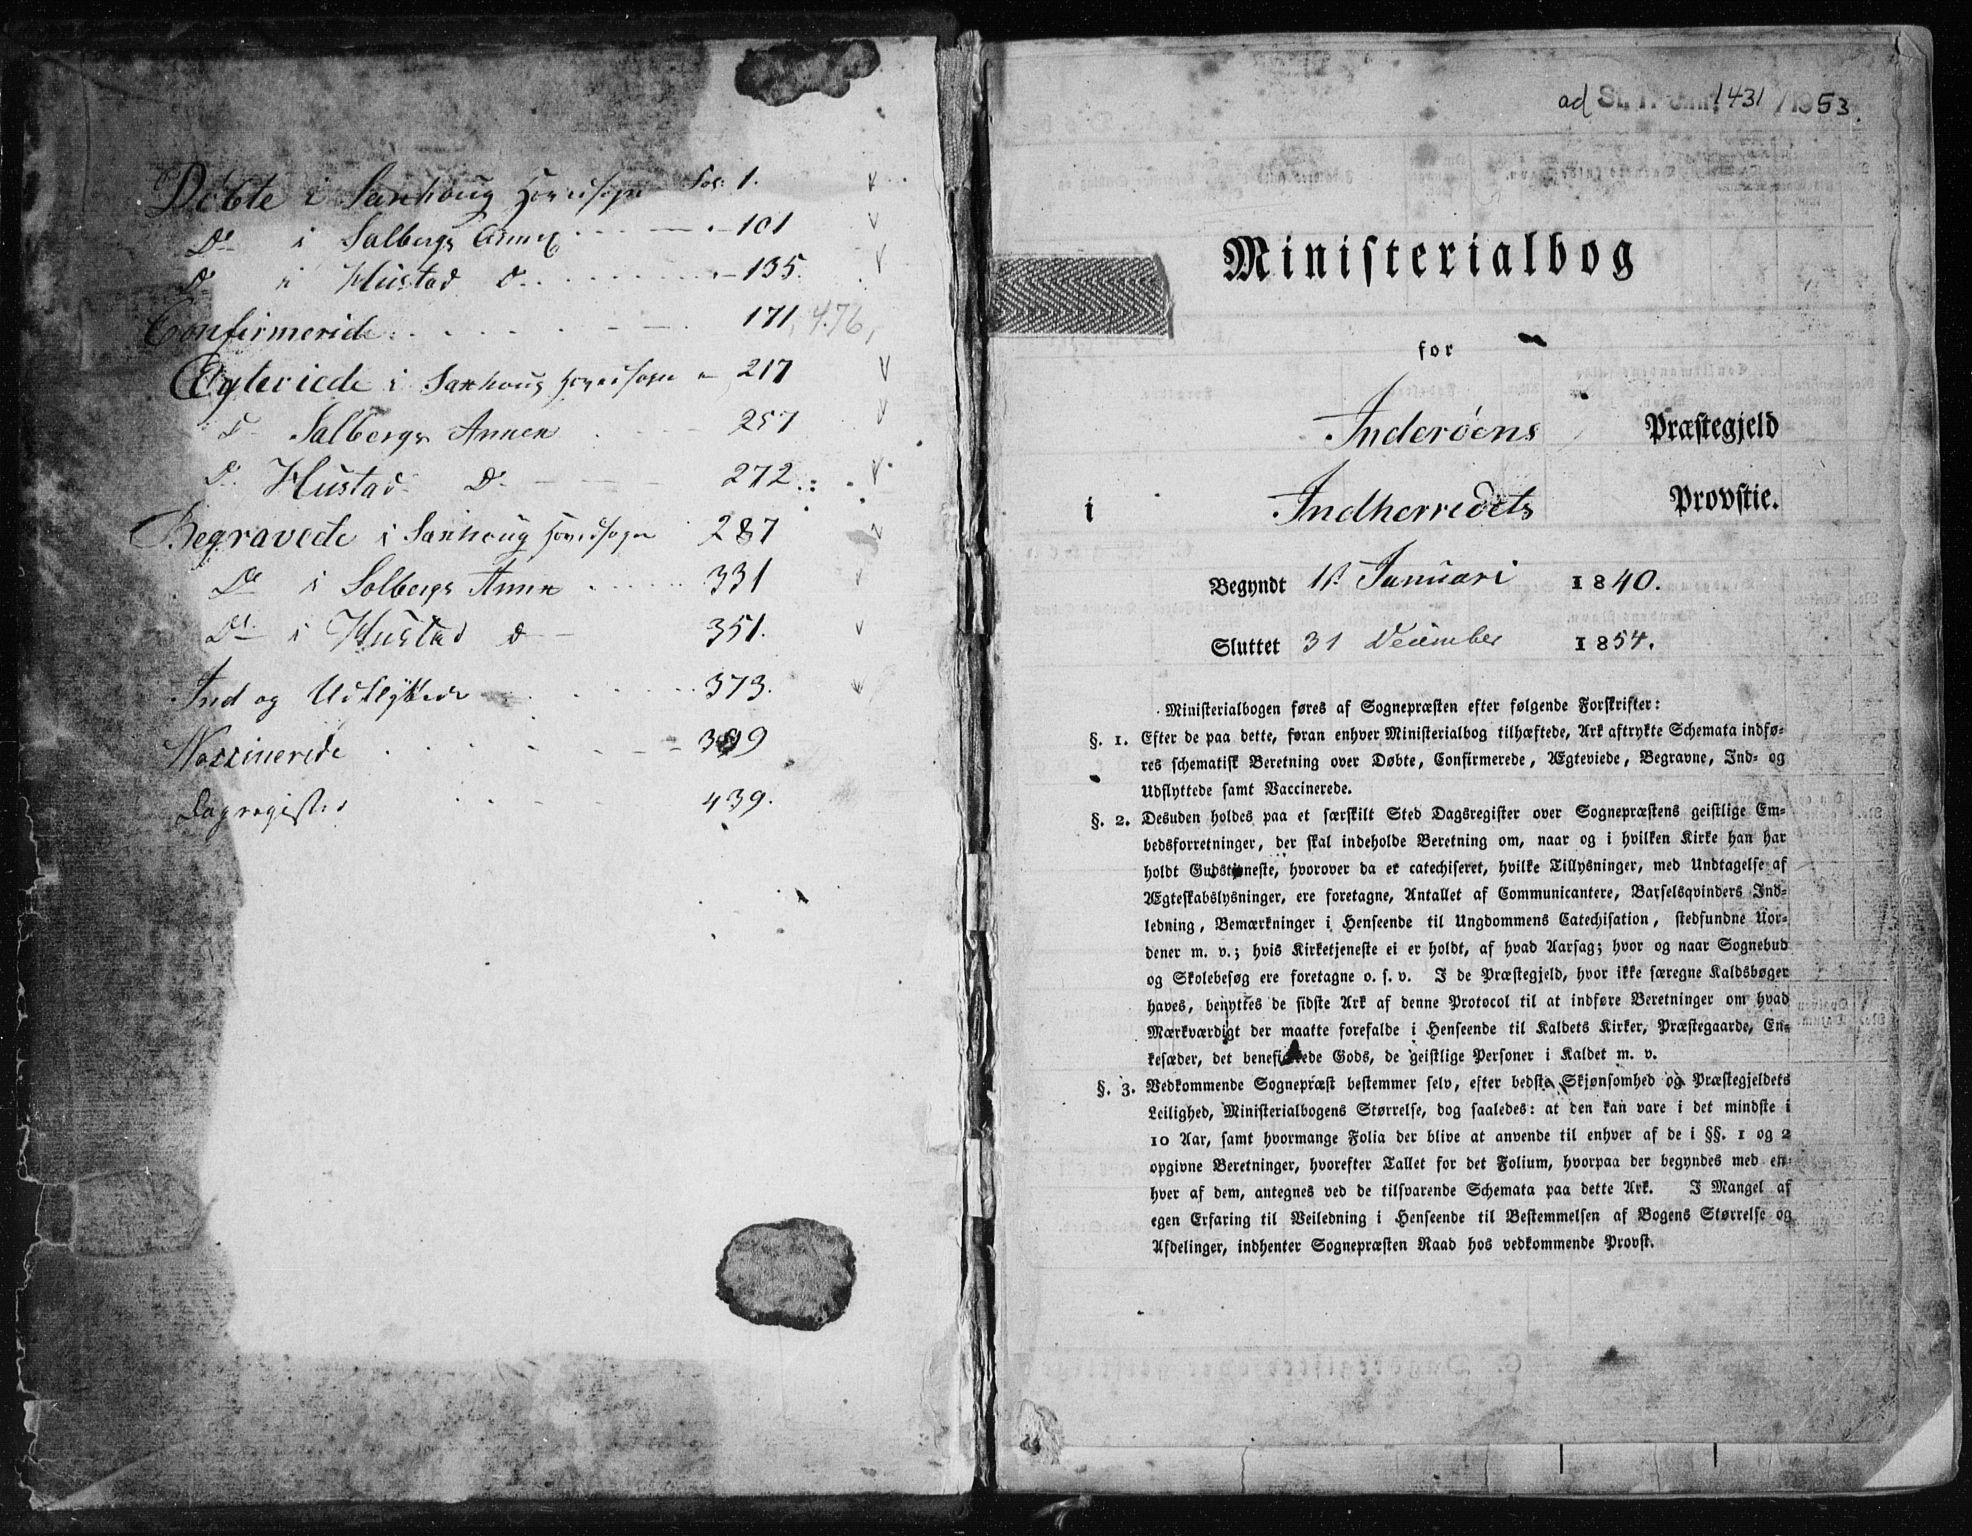 Døbte i Saxhoug Hovedsogn Fol: 1.
Do i Salbergs Annex 101
Do i Hustad Do 135.
Confirmerede 171, 476,
Egteviede i Saxhoug Hovedsogn 217
Do Salbergs Annex 257
Do Hustad Do 272
Begravede i Saxhoug Hovedsogn 287
Do i Salbergs Annex 331
Do i Hustad Do 351.
Ind og Udflyttede 373.
Vaccinerede 399
Dagregister 439.
ad 1431/1953.
Ministerialbog
for
Inderøens Præstegjeld
i Indherredets Provstie.
Begyndt 1ste Januari 1840.
Sluttet 31 December 1854.
Ministerialbogen føres af Sognepræsten efter følgende Forskrifter:
§. 1. Efter de paa dette, foran enhver Ministerialbog tilhæftede, Ark aftrykte Schemata indfø-
res schematisk Beretning over Døbte, Confirmerede, Ægteviede, Begravne, Ind- og
Udflyttede samt Vaccinerede.
§. 2. Desuden holdes paa et særskilt Sted Dagsregister over Sognepræstens geistlige Em-
bedsforretninger, der skal indeholde Beretning om, naar og i hvilken Kirke han har
holdt Gudstjeneste, hvorover da er catechiseret, hvilke Tillysninger, med Undtagelse af
Ægteskabslysninger, ere foretagne, Antallet af Communicantere, Barselqvinders Ind-
ledning, Bemærkninger i Henseende til Ungdommens Catechisation, stedfundne Uor-
dener m. v.; hvis Kirketjeneste ei er holdt, af hvad Aarsag; hvor og naar Sognebud
og Skolebesøg ere foretagne o. s. v. I de Præstegjeld, hvor ikke særegne Kaldsbøger
haves, benyttes de sidste Ark af denne Protocol til at indføre Beretninger om hvad
Mærkværdigt der maatte forefalde i Henseende til Kaldets Kirker, Præstegaarde, En-
kesæder, det beneficerede Gods, de geistlige Personer i Kaldet m. v.
§. 3. Vedkommende Sognepræst bestemmer selv, efter bedste Skjønsomhed og Præstegjeldets
Leilighed, Ministerialbogens Størrelse, dog saaledes: at den kan vare i det mindste i
10 Aar, samt hvormange Folia der blive at anvende til enhver af de i §§. 1 og 2
opgivne Beretninger, hvorefter Tallet for det Folium, hvorpaa der begyndes med en-
hver af dem, antegnes ved de tilsvarende Schemata paa dette Ark. I Mangel af
egen Erfaring til Veiledning i Henseende til Bestemmelsen af Bogens Størrelse og
Afdelinger, indhenter Sognepræsten Raad hos vedkommende Provst.